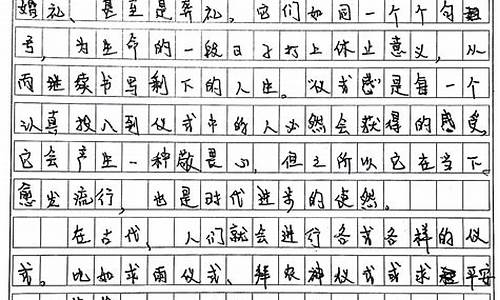 婚礼、甚至是葬礼，它们如同一个个句
号，为生命的一段日子打上休止意义，从
而继续书写剩下的人生。“仪式感”是每一个
认真投入到仪式中的人必然会获得的感受，
它会产生一种敬畏心，但之所以它在当下
愈发流行，也是时代进步的使然。
在古代，人们就会进行各式各样的仪
式。比如求雨仪式、拜农神仪式或求平安